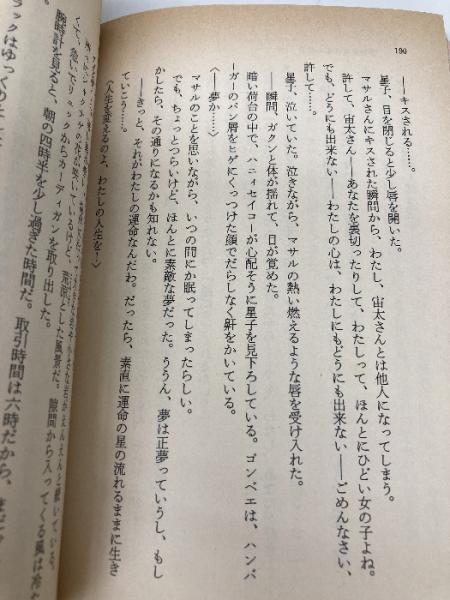 190
――キスされる……。
星子、目を閉じると少し唇を開いた。
マサルさんにキスされた瞬間から、わたし、宙太さんとは他人になってしまう。
許して、宙太さん――あなたを裏切ったりして、わたしって、ほんとにひどい女の子よね。
でも、どうにも出来ない――わたしの心は、わたしにもどうにも出来ない――ごめんなさい、
許して……。
星子、泣いていた。泣きながら、マサルの熱い燃えるような唇を受け入れた。
――瞬間、ガクンと体が揺れて、目が覚めた。
暗い荷台の中で、ハニィセイコーが心配そうに星子を見下ろしている。ゴンベエは、ハンバ
ーガーのパン屑をヒゲにくっつけた顔でだらしなく鼾をかいている。
〈――夢か……〉
マサルのことを思いながら、いつの間にか眠ってしまったらしい。
でも、ちょっとつらいけど、ほんとに素敵な夢だった。ううん、夢は正夢っていうし、もし
かしたら、その通りになるかも知れない。
――きっと、それがわたしの運命なんだわ。だったら、素直に運命の星の流れるままに生き
ていこう……。
〈人生を変えるのよ、わたしの人生を！〉
えんえんと続いている。
荒涼とした風景だ。隙間から入ってくる風は冷た
くて、急いでリュックからカーディガンを取り出した。
腕時計を見ると、朝の四時半を少し過ぎた時間だ。取引時間は六時だから、まだ
ラックはゆっくり